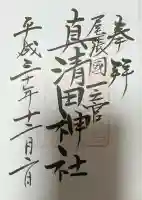 奉拝
尾張國一之宮
真清田神社
平成三十年十二月二日